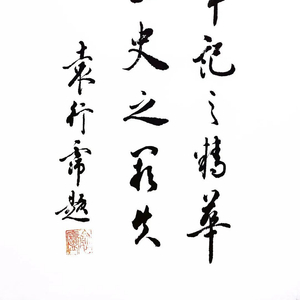 記之精華
史之失
袁行霈題